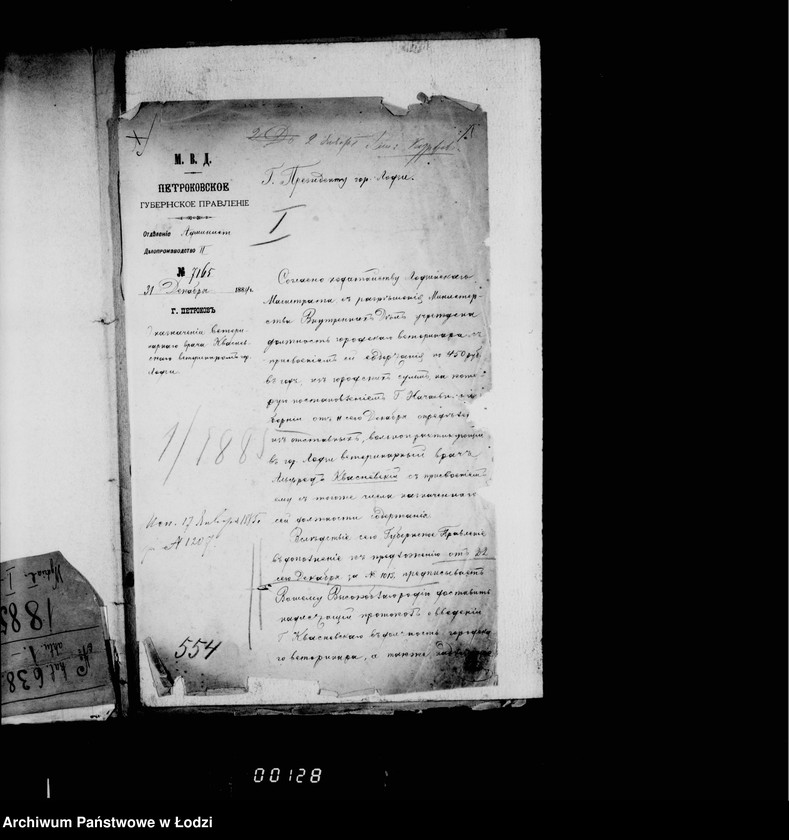 2 Января
М. В. Д.
ПЕТРОКОВСКОЕ
ГУБЕРНСКОЕ ПРАВЛЕНІЕ
Отдѣленіе Админист
Дѣлопроизводство II
№ 7165
31 Декабря 1884 г.
Г. ПЕТРОКОВЪ
назначеніи ветери
нарнаго врача Кваснев
скаго ветеринаромъ гор.
Лодзи.
Г. Президенту гор. Лодзи.
I
Согласно ходатайству Лодзинскаго
Магистрата съ разрѣшенія Министер-
ства Внутреннихъ Дѣлъ учреждена
должность городскаго ветеринара съ
присвоеніемъ ей содержанія по 450 руб.
въ годъ, изъ городскихъ суммъ, на кото
рую постановленіемъ Г. Начальн.
берніи отъ сего Декабря опредѣленъ
въ гор. Лодзи ветеринарный врачъ
Квасневскій съ присвоеніемъ
ему съ того же числа назначеннаго
сей должности содержанія.
Вслѣдствіе сего Губернское Правленіе
въ дополненіе къ предложенію отъ 22
сего Декабря за № 1015 предписываетъ
Вашему Высокоблагородію доставить
надлежащій протоколъ о введеніи
Г. Квасневскаго въ должность городска
го ветеринара, а также
1/1885
Исп. 17 Января 1885 г.
№ 120
554
Wydział I
1885
№ aktu 1.
№ kat 638
00128
Archiwum Państwowe w Łodzi